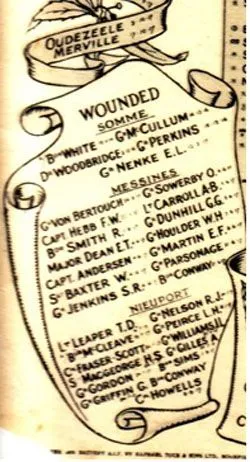 OUDEZEELE
MERVILLE
WOUNDED
SOMME
Bdr WHITE Gr McCULLUM
Dr WOODBRIDGE Gr PERKINS
Gr NENKE E.L.
MESSINES
Gr VON BERTOUCH Gr SOWERBY O.
CAPT. HEBB F.W. Lt CARROLL A.B.
Bdr SMITH R. Gr DUNHILL G.G.
MAJOR DEAN E.T. Gr HOULDER W.H
CAPT. ANDERSEN Gr MARTIN E.F.
St BAXTER W. Gr PARSONAGE
Gr JENKINS S.R. Bdr CONWAY
NIEUPORT
Lt LEAPER T.D. Gr NELSON R.J.
Bdr McCLEAVE Gr PEIRCE L.H.
FRASER-SCOTT Gr WILLIAMS
MACGEORGE H.S. Gr GILLES A
Gr GORDON Bdr SIMS
Gr GRIFFIN G. Bdr CONWAY
HOWELLS
BATTERY A.I.F. BY RAPHAEL TUCK & SONS LTD,